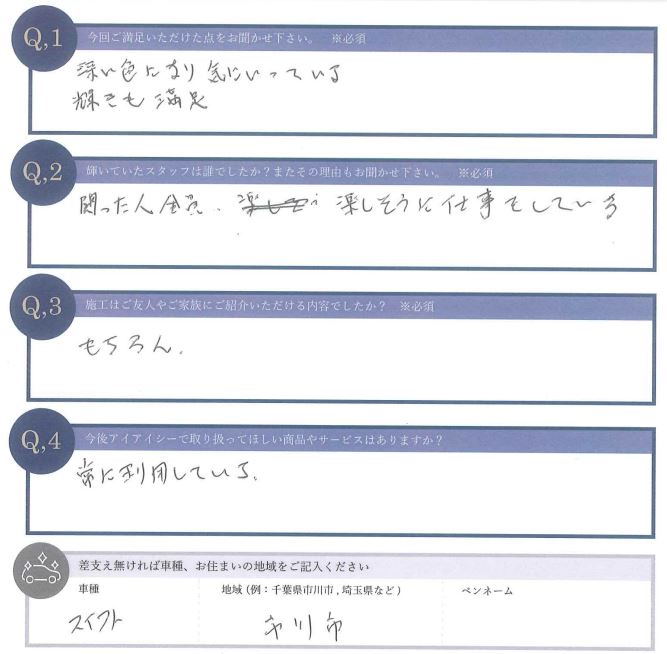 Q,1 今回ご満足いただけた点をお聞かせ下さい。 ※必須
深い色になり気にいっている
輝きも満足
Q,2 輝いていたスタッフは誰でしたか?またその理由もお聞かせ下さい。 ※必須
関った人全員、楽しそうに仕事をしている
Q,3 施工はご友人やご家族にご紹介いただける内容でしたか? ※必須
もちろん.
Q,4 今後アイアイシーで取り扱ってほしい商品やサービスはありますか?
常に利用している.
差支え無ければ車種、お住まいの地域をご記入ください
車種 地域(例:千葉県市川市,埼玉県など) ペンネーム
スイフト 市川市